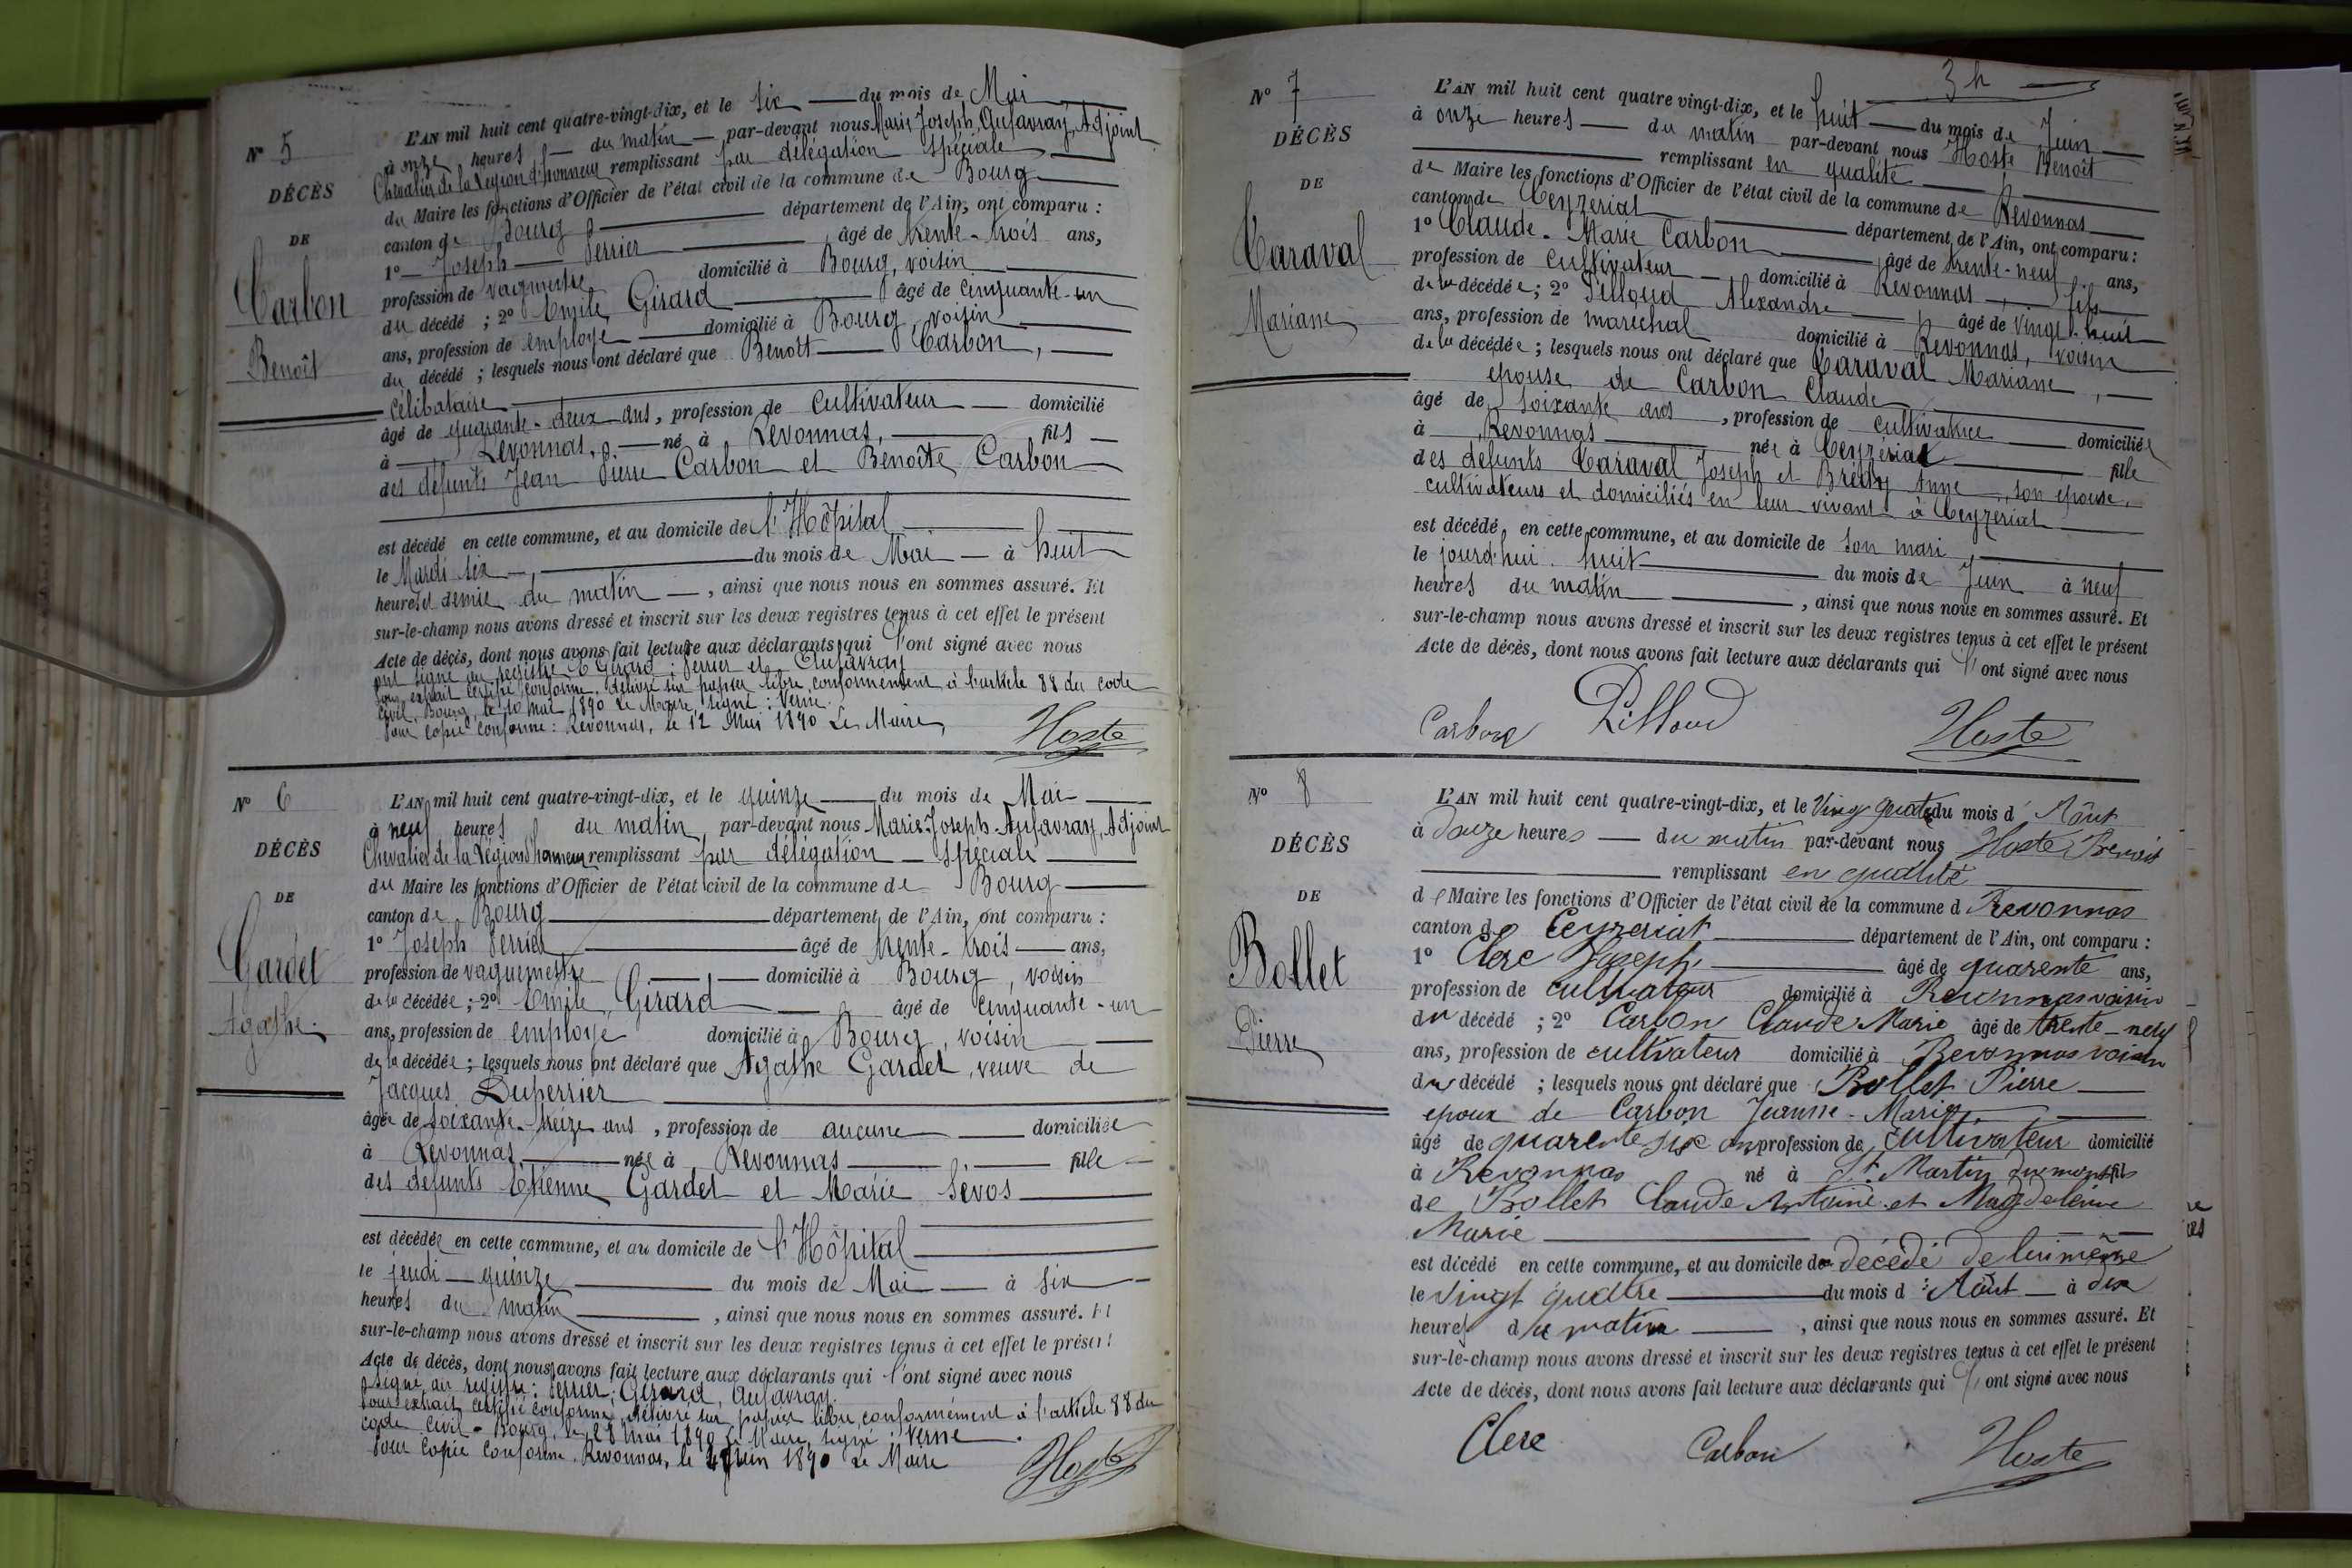 N° 5
DÉCÈS
DE
Carbon
Benoît
L'AN mil huit cent quatre-vingt-dix, et le six du mois de Mai
à onze heures du matin par-devant nous Marie Joseph Aufavray, Adjoint
Chevalier de la Légion d'honneur remplissant par délégation spéciale
du Maire les fonctions d'Officier de l'état civil de la commune de Bourg
canton de Bourg département de l'Ain, ont comparu :
1° Joseph Perrier âgé de trente-trois ans,
profession de vaguemestre domicilié à Bourg, voisin
du décédé ; 2° Emile Girard âgé de cinquante-un
ans, profession de employé domicilié à Bourg, voisin
du décédé ; lesquels nous ont déclaré que Benoît Carbon,
célibataire
âgé de quarante-deux ans, profession de cultivateur domicilié
à Revonnas, né à Revonnas, fils
des défunts Jean Pierre Carbon et Benoîte Carbon
est décédé en cette commune, et au domicile de l'Hôpital
le Mardi six du mois de Mai à huit
heures et demie du matin, ainsi que nous nous en sommes assuré. Et
sur-le-champ nous avons dressé et inscrit sur les deux registres tenus à cet effet le présent
Acte de décès, dont nous avons fait lecture aux déclarants qui l'ont signé avec nous
ont signé au registre E Girard : Perrier et Aufavray
Pour extrait certifié conforme, délivré sur papier libre, conformément à l'article 88 du code
civil. Bourg, le 10 mai 1890 Le Maire, signé : Verne.
Pour copie conforme : Revonnas, le 12 Mai 1890 Le Maire
Hoste
N° 6
DÉCÈS
DE
Gardet
Agathe
L'AN mil huit cent quatre-vingt-dix, et le quinze du mois de Mai
à neuf heures du matin par-devant nous Marie-Joseph-Aufavray, Adjoint
Chevalier de la Légion d'honneur remplissant par délégation spéciale
du Maire les fonctions d'Officier de l'état civil de la commune de Bourg
canton de Bourg département de l'Ain, ont comparu :
1° Joseph Perrier âgé de trente-trois ans,
profession de vaguemestre domicilié à Bourg, voisin
de la décédée ; 2° Emile Girard âgé de cinquante-un
ans, profession de employé domicilié à Bourg, voisin
de la décédée ; lesquels nous ont déclaré que Agathe Gardet, veuve de
Jacques Duperrier
âgée de soixante-treize ans, profession de aucune domiciliée
à Revonnas née à Revonnas fille
des défunts Etienne Gardet et Marie Sevos
est décédée en cette commune, et au domicile de l'Hôpital
le jeudi quinze du mois de Mai à six
heures du matin, ainsi que nous nous en sommes assuré. Et
sur-le-champ nous avons dressé et inscrit sur les deux registres tenus à cet effet le présent
Acte de décès, dont nous avons fait lecture aux déclarants qui l'ont signé avec nous
signé au registre : Perrier ; Girard, Aufavray.
Pour extrait certifié conforme, délivré sur papier libre, conformément à l'article 88 du
code civil - Bourg, le 28 mai 1890 Le Maire, signé : Verne.
Pour copie conforme. Revonnas, le 4 Juin 1890 Le Maire
Hoste
3 h
N° 7
DÉCÈS
DE
Caraval
Mariane
L'AN mil huit cent quatre vingt-dix, et le huit du mois de Juin
à onze heures du matin par-devant nous Hoste Benoît
remplissant en qualité
de Maire les fonctions d'Officier de l'état civil de la commune de Revonnas
canton de Ceyzériat département de l'Ain, ont comparu :
1° Claude-Marie Carbon âgé de trente-neuf ans,
profession de cultivateur domicilié à Revonnas, fils
de la décédée ; 2° Pilloud Alexandre âgé de vingt-huit
ans, profession de maréchal domicilié à Revonnas, voisin
de la décédée ; lesquels nous ont déclaré que Caraval Mariane,
épouse de Carbon Claude
âgé de soixante ans, profession de cultivatrice domiciliée
à Revonnas née à Ceyzériat fille
des défunts Caraval Joseph et Anne, son épouse,
cultivateurs et domiciliés en leur vivant à Ceyzériat
est décédé, en cette commune, et au domicile de son mari,
le jourd'hui huit du mois de Juin à neuf
heures du matin, ainsi que nous nous en sommes assuré. Et
sur-le-champ nous avons dressé et inscrit sur les deux registres tenus à cet effet le présent
Acte de décès, dont nous avons fait lecture aux déclarants qui l'ont signé avec nous
Carbon Pilloud Hoste
N° 8
DÉCÈS
DE
Bollet
Pierre
L'AN mil huit cent quatre-vingt-dix, et le Vingt quatre du mois d'Août
à douze heures du matin par-devant nous Hoste Benoit
remplissant en qualité
de Maire les fonctions d'Officier de l'état civil de la commune d Revonnas
canton de Ceyzeriat département de l'Ain, ont comparu :
1° Clerc Joseph âgé de quarente ans,
profession de cultivateur domicilié à Revonnas voisin
du décédé ; 2° Carbon Claude Marie âgé de trente-neuf
ans, profession de cultivateur domicilié à Revonnas voisin
du décédé ; lesquels nous ont déclaré que Bollet Pierre
epoux de Carbon Jeanne-Marie
âgé de quarente six ans profession de cultivateur domicilié
à Revonnas né à St Martin dumont fils
de Bollet Claude Antoine et Magdeleine
Marie
est décédé en cette commune, et au domicile de décédé de lui même
le vingt quatre du mois d'Août à dix
heures du matin, ainsi que nous nous en sommes assuré. Et
sur-le-champ nous avons dressé et inscrit sur les deux registres tenus à cet effet le présent
Acte de décès, dont nous avons fait lecture aux déclarants qui l'ont signé avec nous
Clerc Carbon Hoste